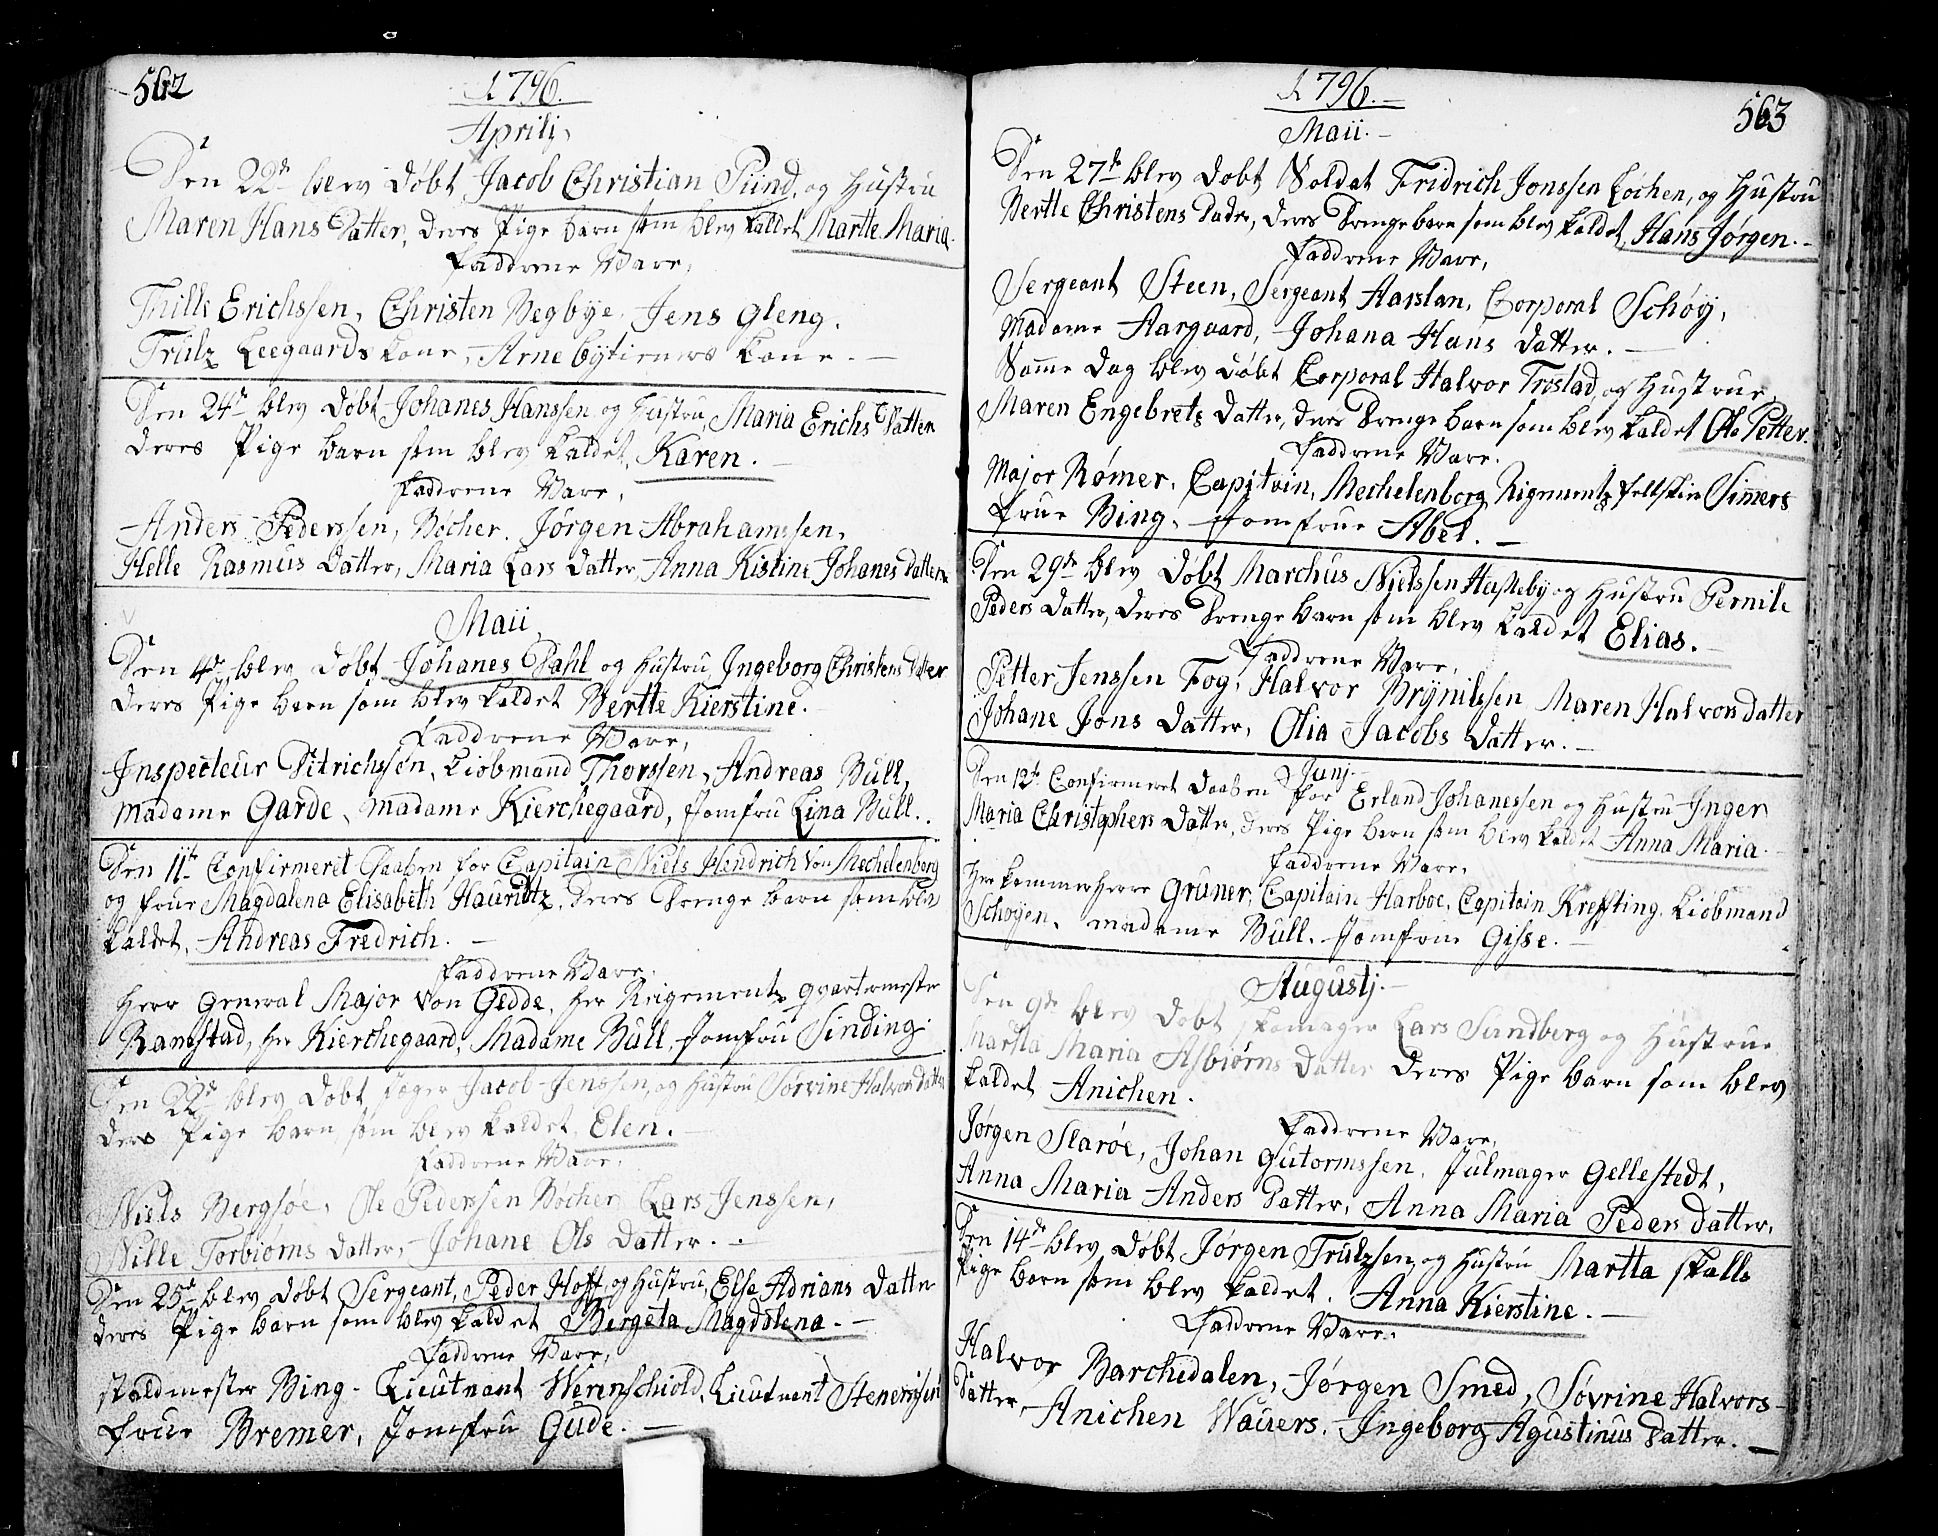 562
1796.
Aprilj,
Den 22de blev døbt Jacob Christian Sünd, og Hustru
Maren Hans Datter, deres Pige barn som blev kaldet Martte Maria.
Faddrene Vare,
Thille Erichssen, Christen Begbye, Jens Gleng.
Trülz Leegaards kone, Arne Bytiernes kone. —
Den 24de blev døbt Johanes Hanssen og Hustru, Maria Erichs Datter
deres Pige barn som blev kaldet, Karen. —
Faddrene Vare,
Anders Pederssen, Bøcher. Jørgen Abrahamssen,
Helle Rasmus Datter, Maria Lars Datter, Anna Kistine Johanes Datter
Maii,
Den 4de blev døbt Johanes Dahl og Hustru Ingeborg Christens Datter
deres Pige barn som blev kaldet Bertte Kierstine.
Faddrene Vare,
Inspecteur Ditrichssen, Kiøbmand Thorssen, Andreas Büll,
Madame Garde, Madame Kierchegaard, Jomfru Lina Büll..
Den 11te Confirmeret Daaben for Capitain Niels Hendrich Von Mechelenborg
og frue Magdalena Elisabeth Hauritz, deres Drenge barn som blev
kaldet, Andreas Fredrich. —
Faddrene Vare,
Herr General Major Von Gedde, Her Regements Qvartermester
Rambstad, Her Kierchegaard, Madame Büll, Jomfru Sinding.
Den 22de blev døbt Jacob Jenssen, og Hustru Sørvine Halvors Datter
deres Pige barn som blev kaldet, Elen. —
Faddrene Vare,
Niels Bergsøe, Ole Pederssen Bøcher, Lars Jenssen,
Nille Torbiørns Datter, Johane Ols Datter. —
Den 25de blev døbt Sergeant, Peder Hoff, og Hustru, Else Adrians Datter
deres Pige barn som blev kaldet Bergeta Magdalena. —
Faddrene Vare,
Staldmester Bing. Lieutnant Wernschiold, Lieutnant Stenerssen
Frue Bremer, Jomfru Gude. —
1796. —
563
Maii. —
Den 27de blev døbt Soldat Fridrich Jonssen Løchen, og Hustru
Bertte Christens Datter, deres Drenge barn som blev kaldet, Hans Jørgen. —
Faddrene Vare,
Sergeant Steen, Sergeant Aarslan, Corporal Schøy,
Madame Aargaard, Johana Hans Datter. —
Samme Dag blev døbt Corporal Halvor Trostad, og Hustrue,
Maren Engebrets Datter, deres Drenge barn som blev kaldet Ole Petter.
Faddrene Vare.
Major Rømer, Capitain, Mechelenborg, Rigements feltskier Simers
Frue Bing, Jomfrue Abel. —
Den 29de blev døbt Marchus Nielssen Hasleby og Hustru Pernile
Peders Datter, deres Drenge barn som blev kaldet Elias. —
Faddrene Vare,
Petter Jenssen Fog, Halvor Brynilssen Maren Halvors Datter
Johane Jons Datter, Olia Jacobs Datter. —
Junj. —
Den 12te Confirmeret Daaben for Erland Johanessen og Hustru Inger
Maria Christophers Datter, deres Pige barn som blev kaldet Anna Maria. —
Faddrene Vare,
Her kammerherre Gruner, Capitain Harboe, Capitain Krefting, Kiøbmand
Schøyen, Madame Büll. Jomfrue Gisse. —
Augustj. —
Den 9de blev døbt Skomager Lars Sundberg og Hustrue
Martta Maria Asbiørns Datter deres Pige barn som blev
kaldet Anichen.
Faddrene Vare,
Jørgen Slarøe, Johan Gutormssen, Julmager Gellestedt,
Anna Maria Anders Datter, Anna Maria Peders Datter.
Den 14de blev døbt Jørgen Trülzsen og Hustru Martta Skalle
Pige barn som blev kaldet, Anna Kierstine. —
Faddrene Vare.
Halvor Barchedalen, Jørgen Smed, Søvrine Halvors-
Datter, Anichen Wauers, Ingeborg Agustinus Datter. —